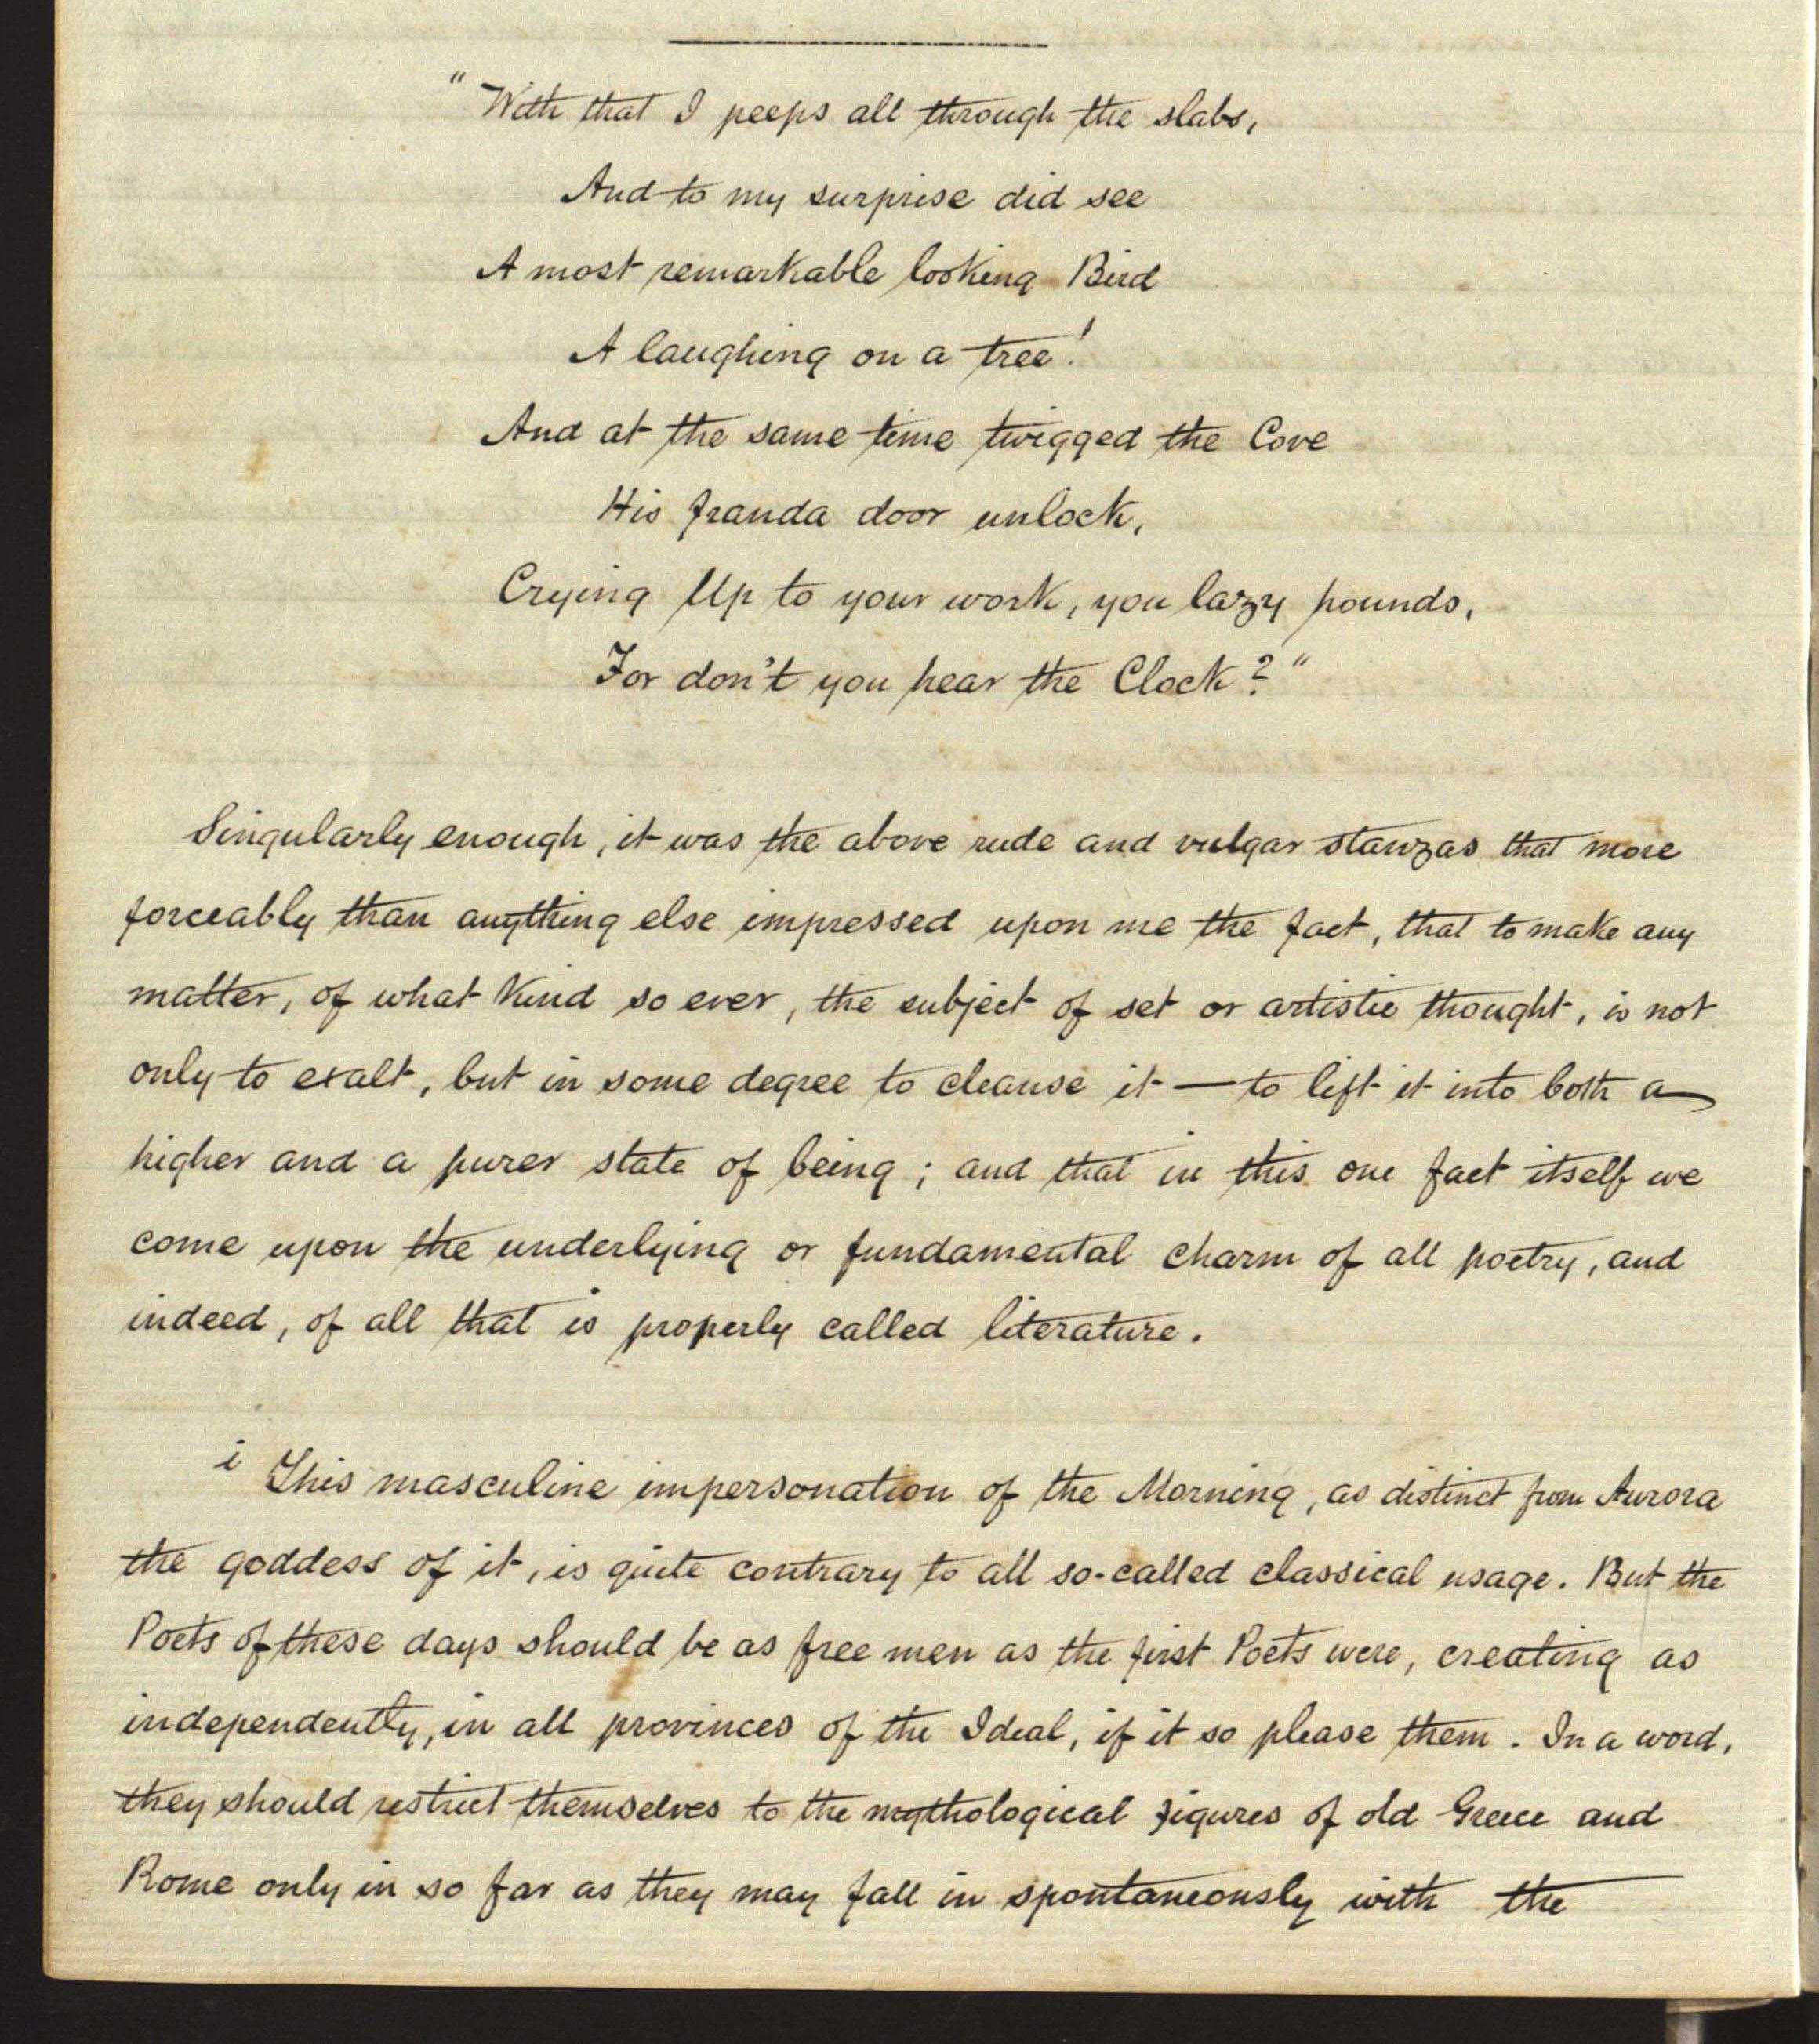 "With that I peeps all through the slabs,
And to my surprise did see
A most remarkable looking Bird
A laughing on a tree!
And at the same time twigged the Cove
His franda door unlock,
Crying Up to your work, you lazy hounds,
For don't you hear the Clock?"
Singularly enough, it was the above rude and vulgar stanzas that more
forceably than anything else impressed upon me the fact, that to make any
matter, of what kind so ever, the subject of set or artistic thought, is not
only to exalt, but in some degree to cleanse it — to lift it into both a
higher and a purer state of being; and that in this one fact itself we
come upon the underlying or fundamental charm of all poetry, and
indeed, of all that is properly called literature.
i This masculine impersonation of the Morning, as distinct from Aurora
the goddess of it, is quite contrary to all so-called classical usage. But the
Poets of these days should be as free men as the first Poets were, creating as
independently, in all provinces of the Ideal, if it so please them. In a word,
they should restrict themselves to the mythological figures of old Greece and
Rome only in so far as they may fall in spontaneously with the